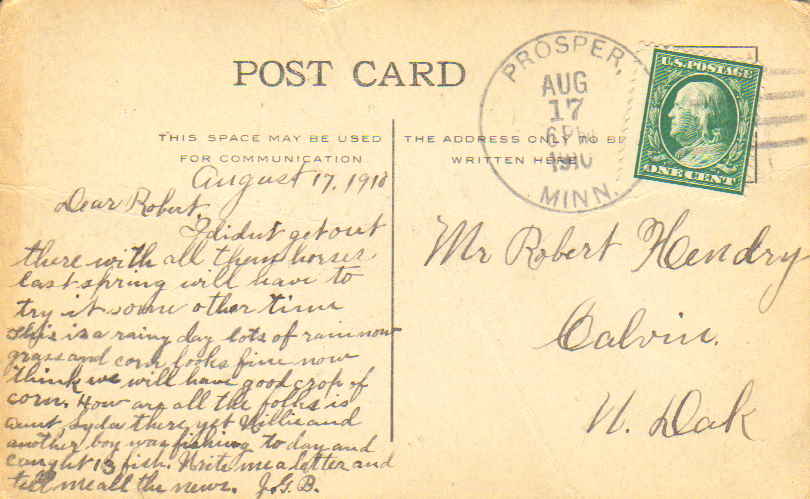 POST CARD
PROSPER,
AUG
17
6 PM
1910
MINN.
U.S. POSTAGE
ONE CENT
THIS SPACE MAY BE USED
FOR COMMUNICATION
THE ADDRESS ONLY TO BE
WRITTEN HERE
August 17, 1910
Dear Robert,
I didnt get out
there with all them horses
last spring will have to
try it some other time
This is a rainy day lots of rain now
grass and corn looks fine now
think we will have good crop of
corn. How are all the folks is
aunt Lyda there yet Willie and
another boy was fishing to day and
caught 13 fish. Write me a letter and
tell me all the news. J.G.B.
Mr Robert Hendry
Calvin.
N. Dak